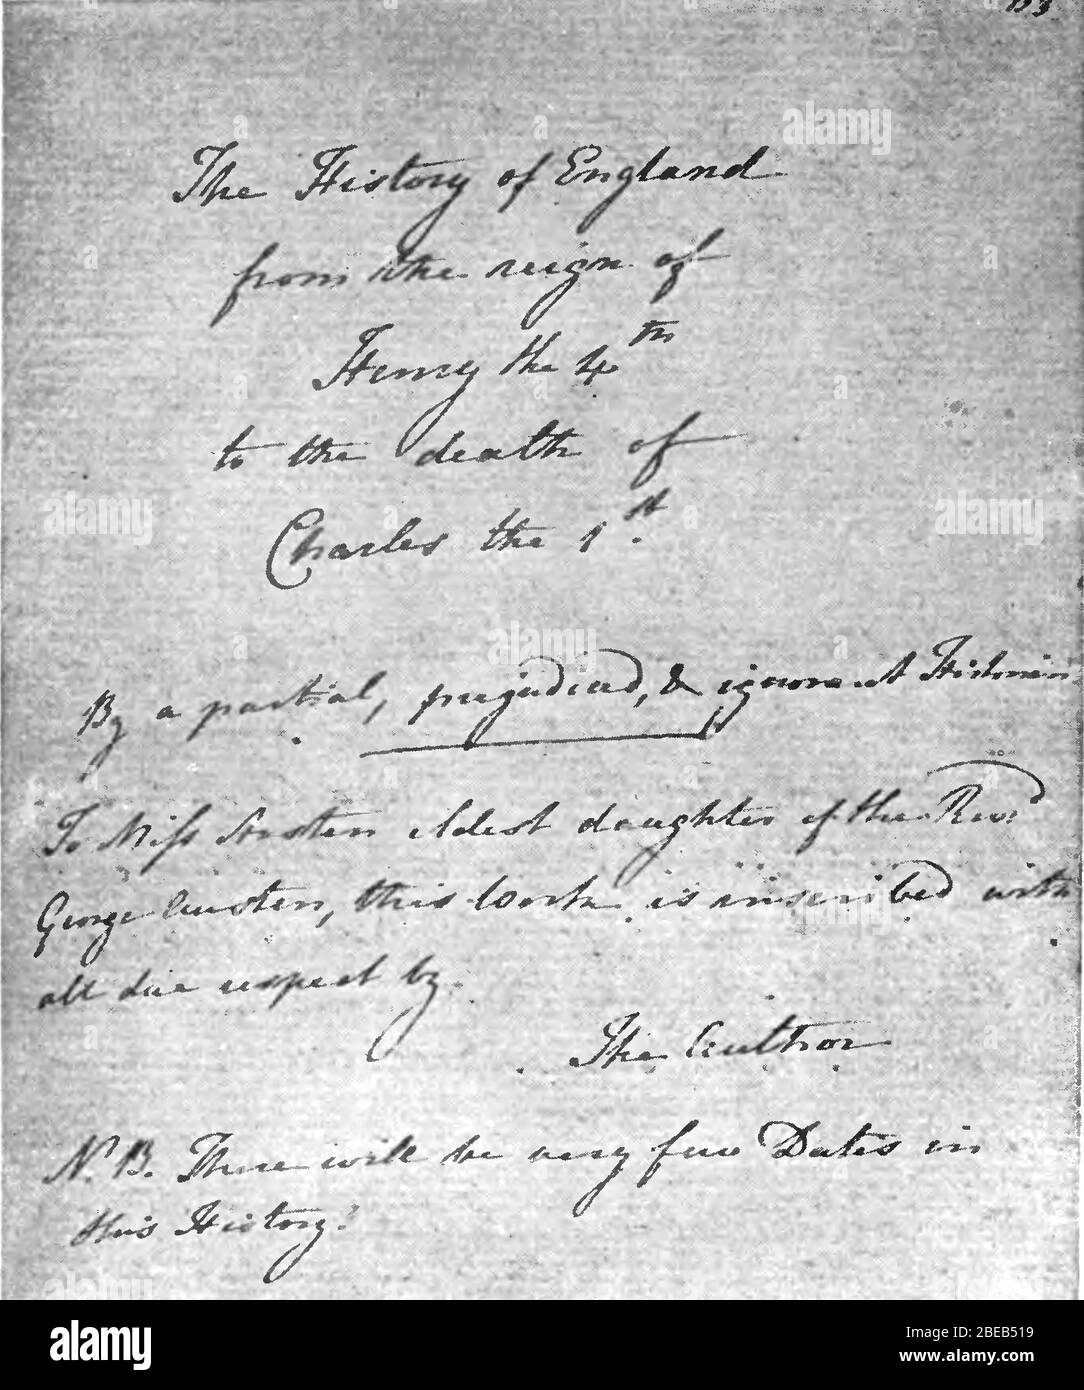 153
The History of England
from the reign of
Henry the 4th
to the death of
Charles the 1st.
By a partial, prejudiced, & ignorant Historian
To Miss Austen eldest daughter of the Revd
George Austen, this work is inscribed with
all due respect by
The Author
N.B. There will be very few Dates in
this History.
alamy
alamy
alamy
alamy
alamy
Image ID: 2BEB519
www.alamy.com